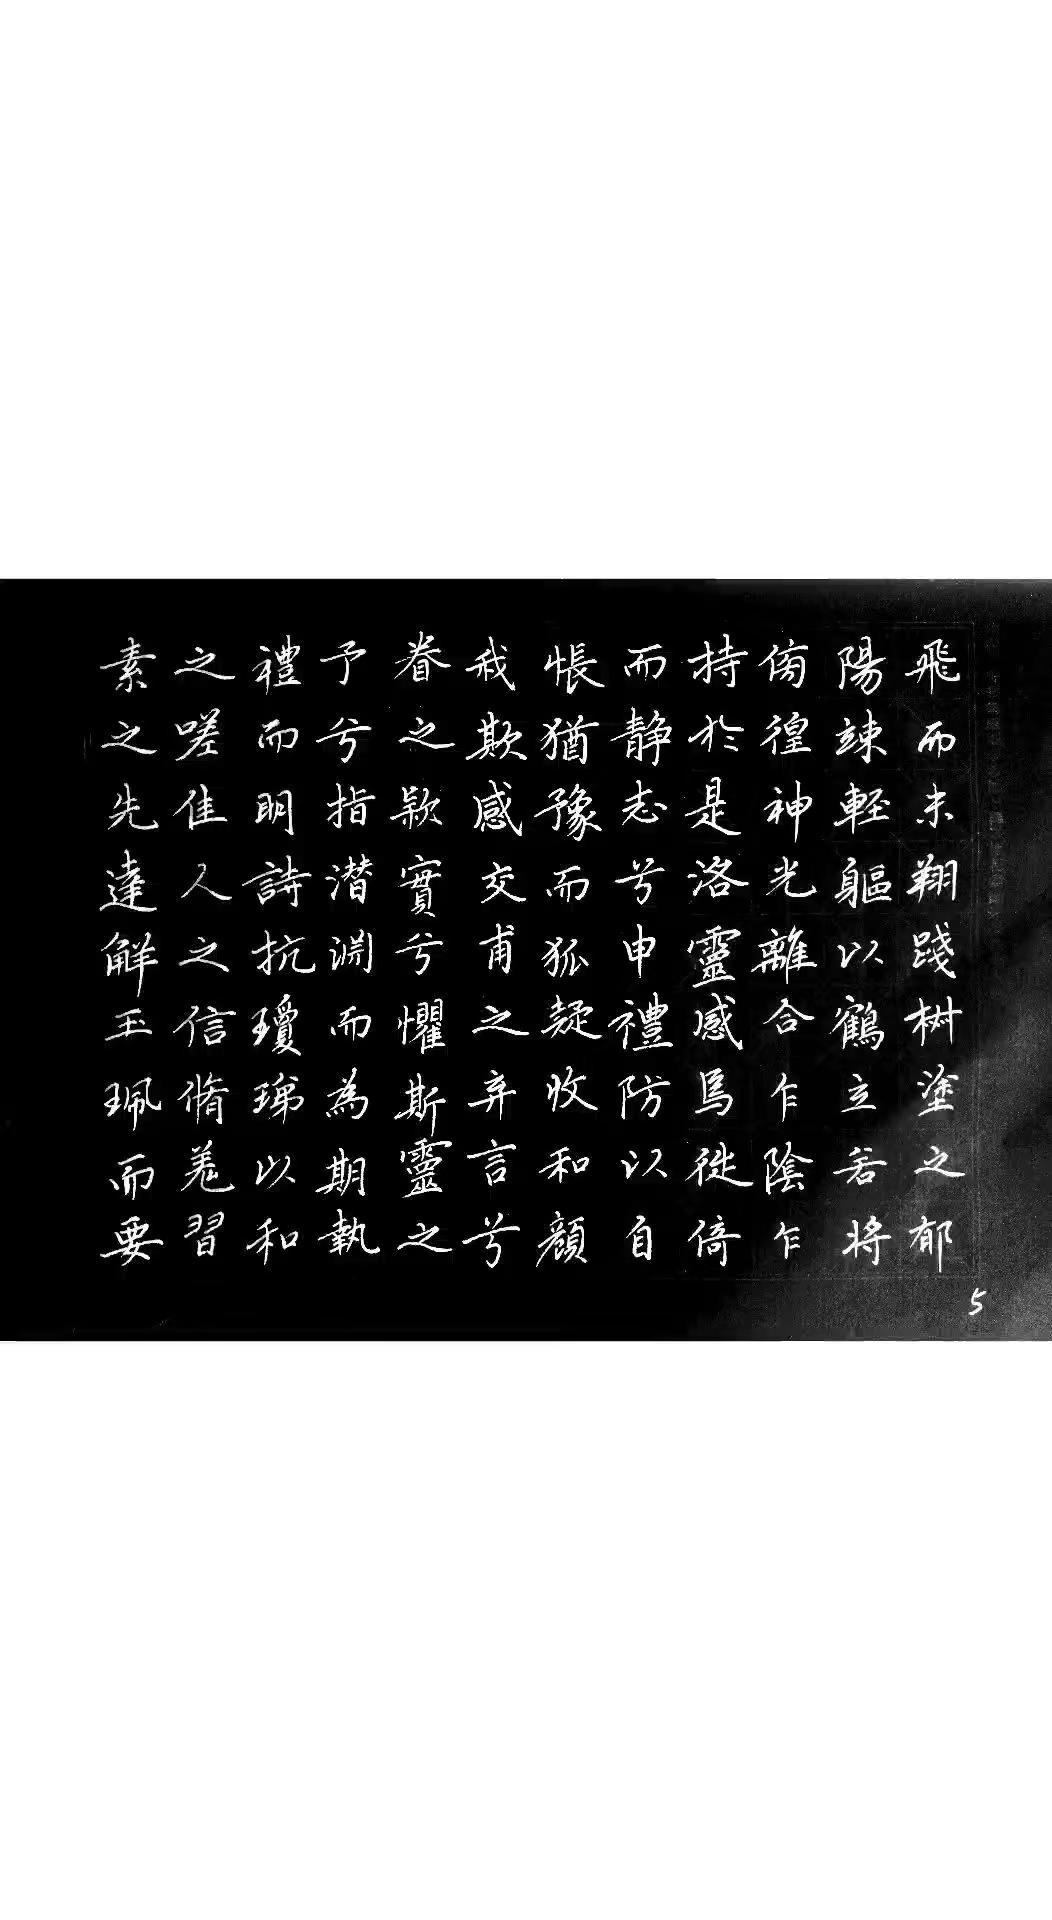 素之先達解玉珮而要
之嗟佳人之信脩羌習
禮而明詩抗瓊珶以和
予兮指潛淵而為期執
眷之款實兮懼斯靈之
我欺感交甫之弃言兮
悵猶豫而狐疑收和顏
而静志兮申禮防以自
持於是洛靈感焉徙倚
傍徨神光離合乍陰乍
陽竦輕軀以鶴立若將
飛而未翔踐椒塗之郁
5